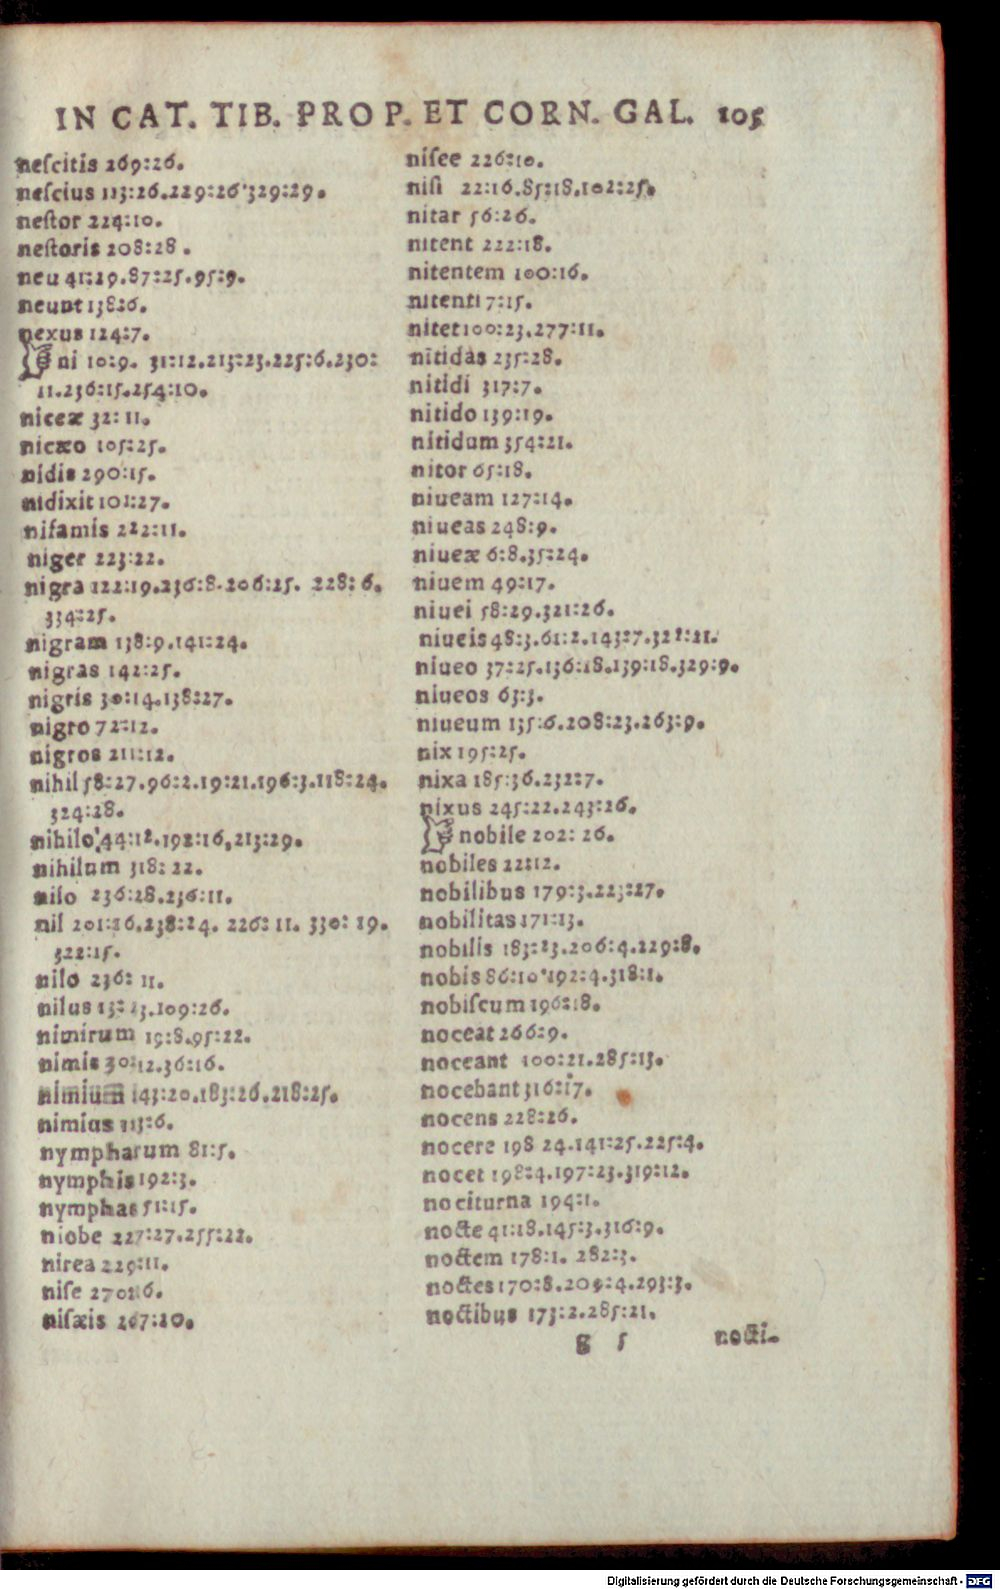 IN CAT. TIB. PROP. ET CORN. GAL. 105
neſcitis 269:26.
neſcius 113:26.229:26.329:29.
neſtor 224:10.
neſtoris 208:28.
neu 41:29.87:25.95:9.
neunt 138:6.
nexus 124:7.
ni 10:9. 31:12.213:23.225:6.230:
11.236:15.254:10.
niceæ 32:11.
nicæo 105:25.
nidis 290:15.
nidixit 101:27.
nifamis 222:11.
niger 223:22.
nigra 122:19.236:8.206:25. 228:6.
334:25.
nigram 138:9.141:24.
nigras 142:25.
nigris 30:14.138:27.
nigro 72:12.
nigros 211:12.
nihil 58:27.96:2.19:21.196:3.118:24.
324:28.
nihilo 44:18.192:16,213:29.
nihilum 318:22.
nilo 236:28.236:11.
nil 201:26.238:24. 226:11. 330:19.
322:15.
nilo 236:11.
nilus 13:23.109:26.
nimirum 19:8.95:22.
nimis 30:12.36:16.
nimium 143:20.183:26.218:25.
nimius 113:6.
nympharum 81:5.
nymphis 192:3.
nymphas 51:15.
niobe 227:27.255:22.
nirea 229:11.
niſe 270:6.
niſæis 267:20.
niſee 226:10.
niſi 22:16.85:18.102:25.
nitar 56:26.
nitent 222:18.
nitentem 100:16.
nitenti 7:15.
nitet 100:23.277:11.
nitidas 235:28.
nitidi 317:7.
nitido 139:19.
nitidum 354:21.
nitor 65:18.
niueam 127:14.
niueas 248:9.
niueæ 6:8.35:24.
niuem 49:17.
niuei 58:29.321:26.
niueis 48:3.61:2.143:7.328:21.
niueo 37:25.136:18.139:18.329:9.
niueos 63:3.
niueum 135:6.208:23.263:9.
nix 195:25.
nixa 185:36.232:7.
nixus 245:22.243:26.
nobile 202:26.
nobiles 22:12.
nobilibus 179:3.223:27.
nobilitas 171:13.
nobilis 183:23.206:4.229:8.
nobis 86:10.192:4.318:1.
nobiſcum 196:18.
noceat 266:9.
noceant 100:21.285:13.
nocebant 316:17.
nocens 228:26.
nocere 198 24.141:25.225:4.
nocet 198:4.197:23.319:12.
nociturna 194:1.
nocte 41:18.145:3.316:9.
noctem 178:1. 282:3.
noctes 170:8.209:4.293:3.
noctibus 173:2.285:21.
g 5 nocti-
Digitalisierung gefördert durch die Deutsche Forschungsgemeinschaft - DFG